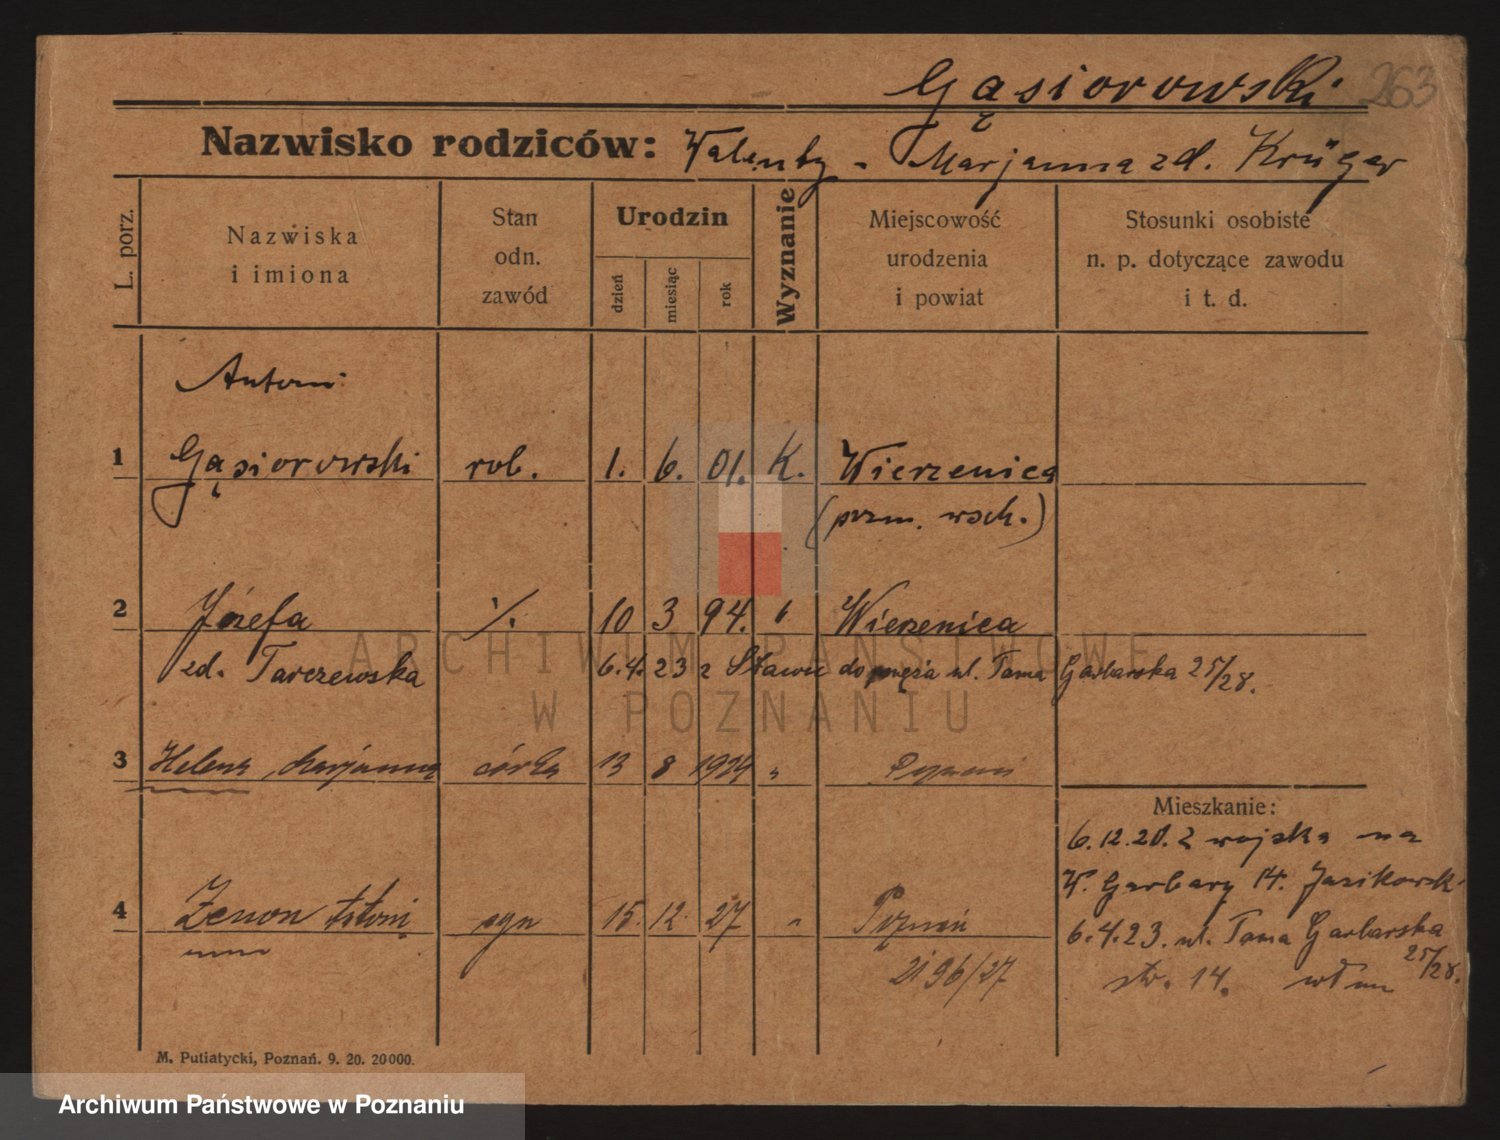 Gąsiorowski 263
Nazwisko rodziców: Walenty - Marjanna zd. Krüger
L. porz.
Nazwiska
i imiona
Stan
odn.
zawód
Urodzin
dzień
miesiąc
rok
Wyznanie
Miejscowość
urodzenia
i powiat
Stosunki osobiste
n. p. dotyczące zawodu
i t. d.
Antoni
1 Gąsiorowski rob. 1. 6. 01. K. Wierzenica
(pozn. wsch.)
2 Józefa ./. 10 3 94. " Wierzenica
zd. Tarczewska 6.4.23 z do męża ul. Tama Garbarska 25/28.
3 Helena, Marjanna córka 13 8 1924 " Poznań
Mieszkanie:
6.12.20. z wojska na
W. Garbary 14.
4 Zenon syn 15. 12. 27 " Poznań
6.4.23. ul. Tama Garbarska
25/28.
2196/27
str. 14.
M. Putiatycki, Poznań. 9. 20. 20000.
ARCHIWUM PAŃSTWOWE
W POZNANIU
Archiwum Państwowe w Poznaniu